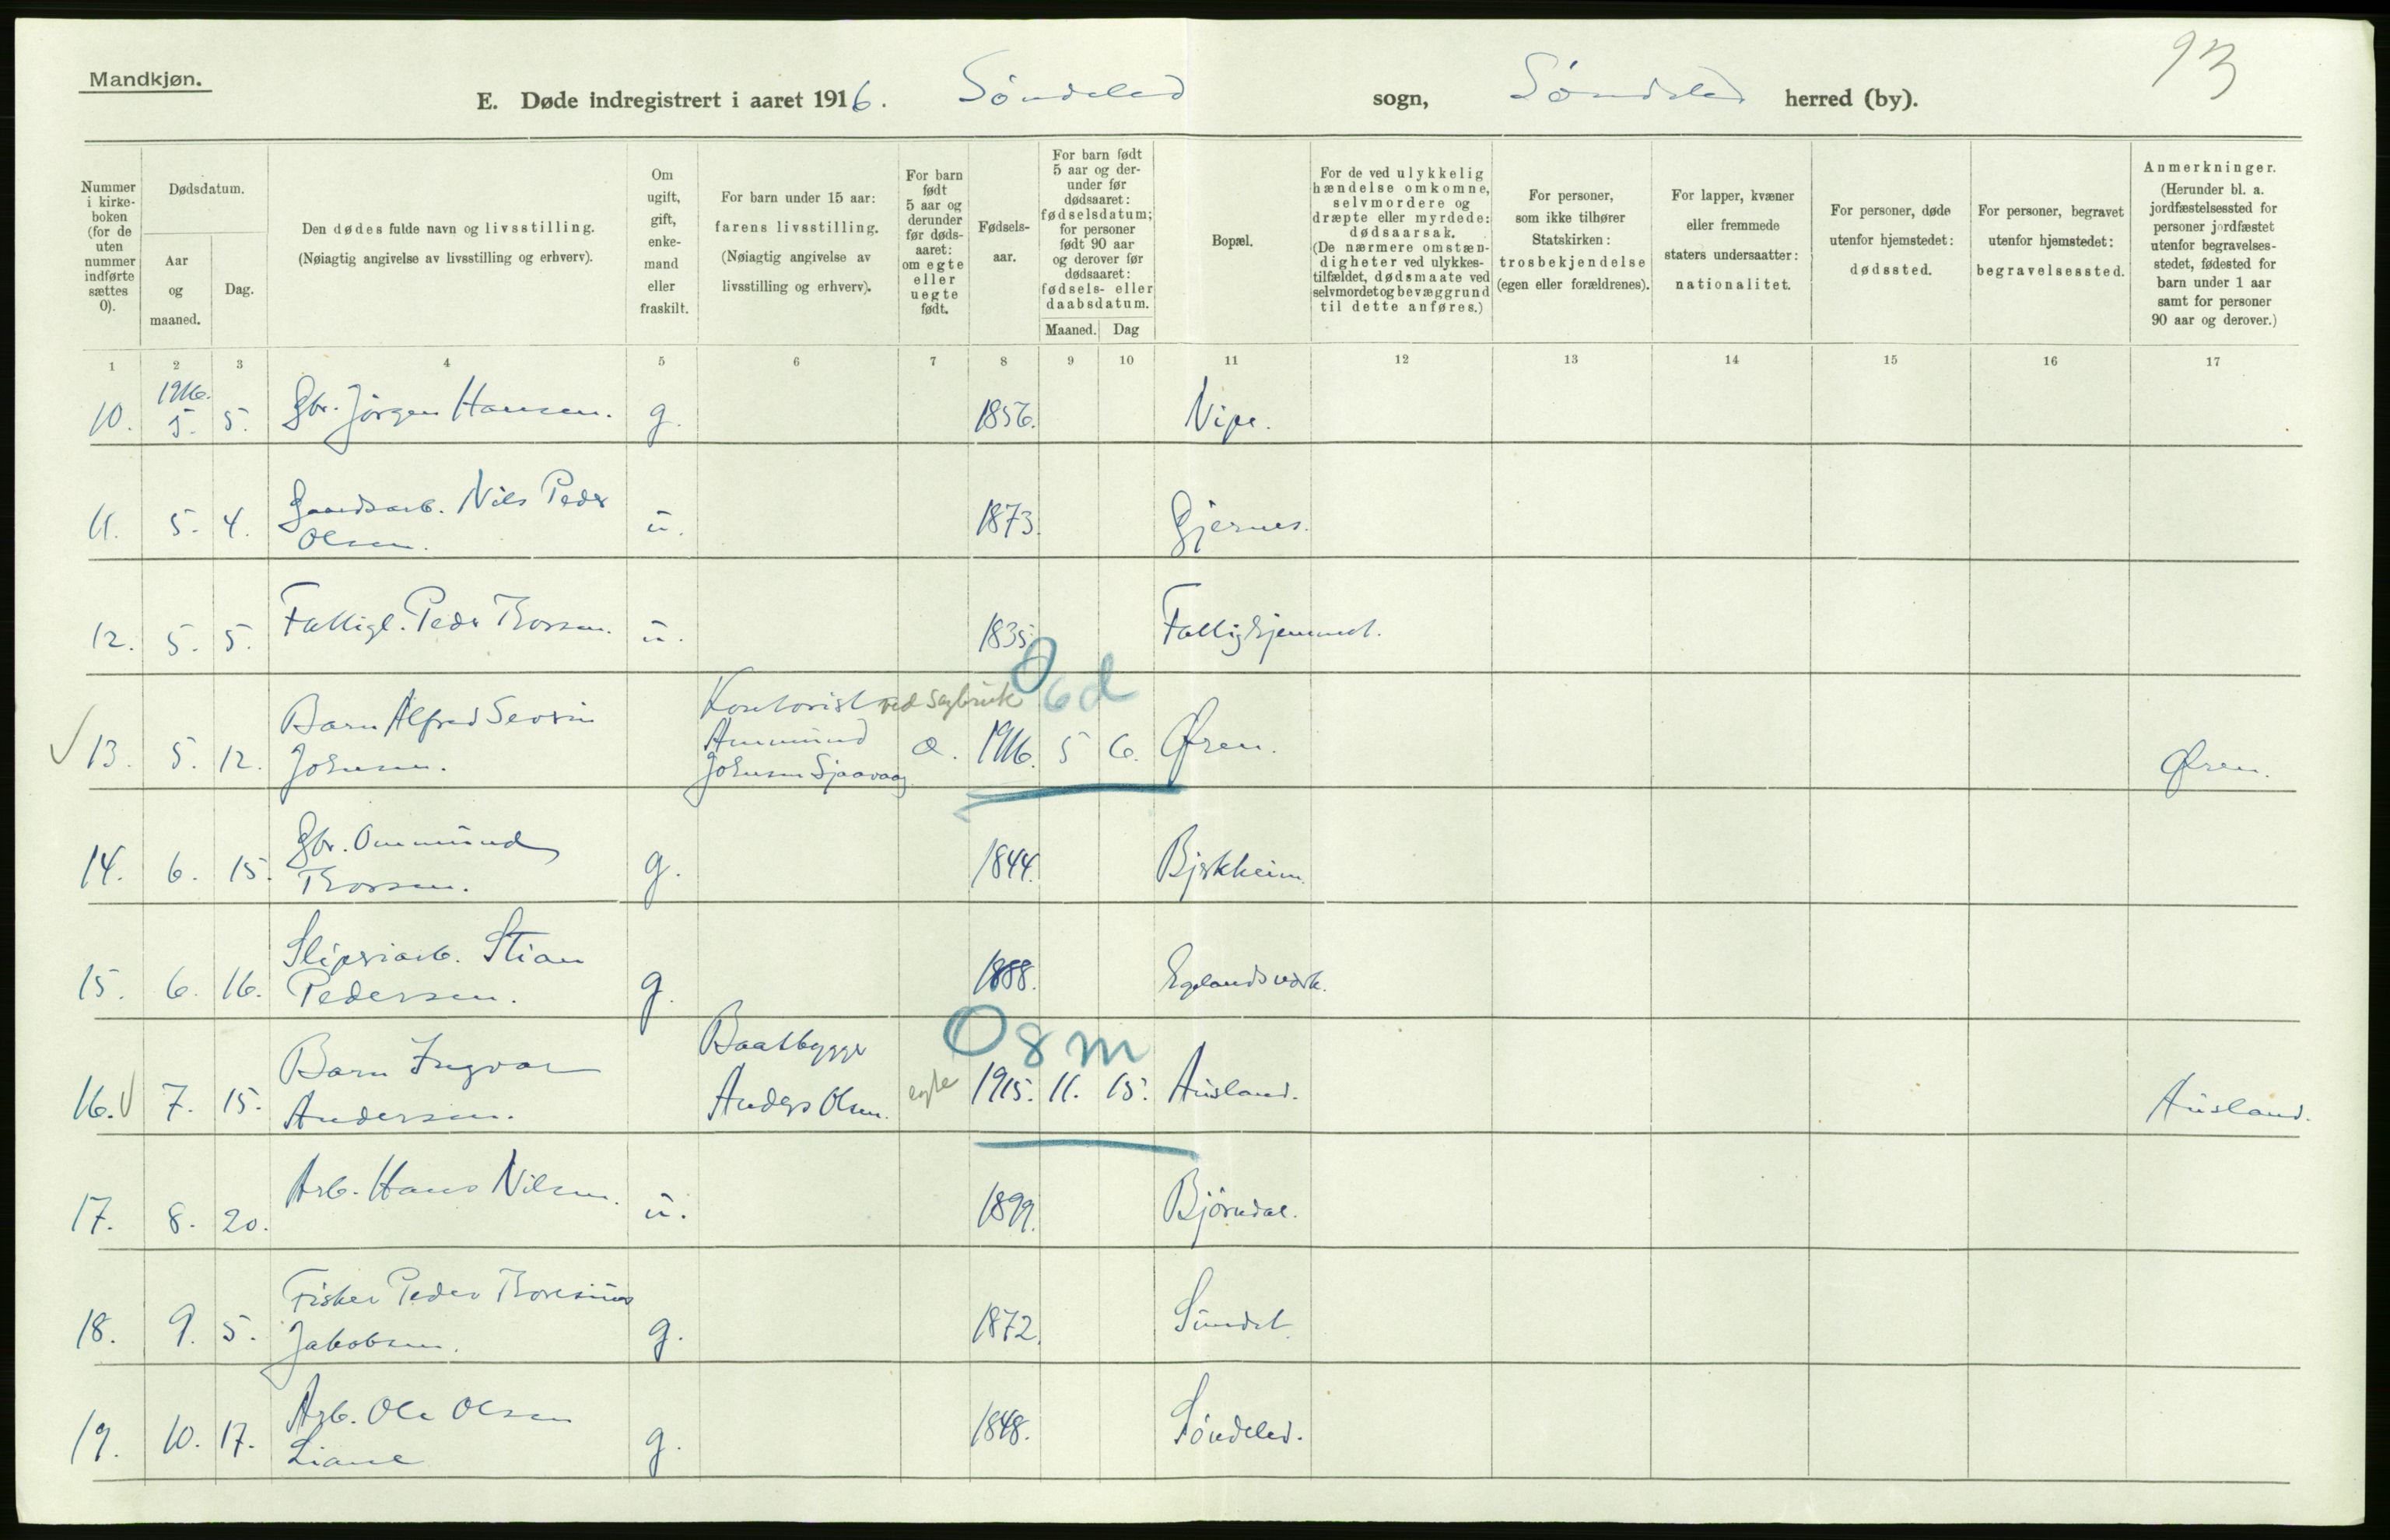 93
Mandkjøn.
E. Døde indregistrert i aaret 1916. Söndeled sogn, Söndeled herred (by).
Nummer i kirke-boken (for de uten nummer indførte sættes 0).
Dødsdatum.
Aar og maaned.
Dag.
Den dødes fulde navn og livsstilling. (Nøiagtig angivelse av livsstilling og erhverv).
Om ugift, gift, enke-mand eller fraskilt.
For barn under 15 aar: farens livsstilling. (Nøiagtig angivelse av livsstilling og erhverv).
For barn født 5 aar og derunder før døds-aaret: om egte eller uegte født.
Fødsels-aar.
For barn født 5 aar og der-under før dødsaaret: fødselsdatum; for personer født 90 aar og derover før dødsaaret: fødsels- eller daabsdatum.
Maaned. Dag
Bopæl.
For de ved ulykkelig hændelse omkomne, selvmordere og dræpte eller myrdede: dødsaarsak. (De nærmere omstæn-digheter ved ulykkes-tilfældet, dødsmaate ved selvmordet og bevæggrund til dette anføres.)
For personer, som ikke tilhører Statskirken: trosbekjendelse (egen eller forældrenes).
For lapper, kvæner eller fremmede staters undersaatter: nationalitet.
For personer, døde utenfor hjemstedet: dødssted.
For personer, begravet utenfor hjemstedet: begravelsessted.
Anmerkninger. (Herunder bl. a. jordfæstelsessted for personer jordfæstet utenfor begravelses-stedet, fødested for barn under 1 aar samt for personer 90 aar og derover.)
1 2 3 4 5 6 7 8 9 10 11 12 13 14 15 16 17
1916.
10. 5. 5. Gbr. Jörgen Hansen. g. 1856. Nipe.
11. 5. 4. Gaardsarb. Nils Peder
Olsen. u. 1873. Gjernes.
12. 5. 5. Fattigl. Peder Thorsen. u. 1835. Fattighjemmet.
0 6 d
13. 5. 12. Barn Alfred Severin
Johnsen.
Kontorist ved sagbruk
Ammund
Johnsen Sjaavaag. 1916. 5 6. Øren. Øren.
14. 6. 15. Gbr. Ommund
Thorsen. g. 1844. Bjrkheim.
15. 6. 16. Sliperiarb. Stian
Pedersen. g. 1888. Egelandsverk.
0 8 m
16. 7. 15. Barn Ingvar
Andersen.
Baatbygger
Anders Olsen. egte 1915. 11. 15. Ausland. Ausland.
17. 8. 20. Arb. Hans Nilsen. u. 1899. Björndal.
18. 9. 5. Fisker Peder Thoresius
Jakobsen. g. 1872. Sundet.
19. 10. 17. Arb. Ole Olsen
Liane g. 1848. Söndeled.